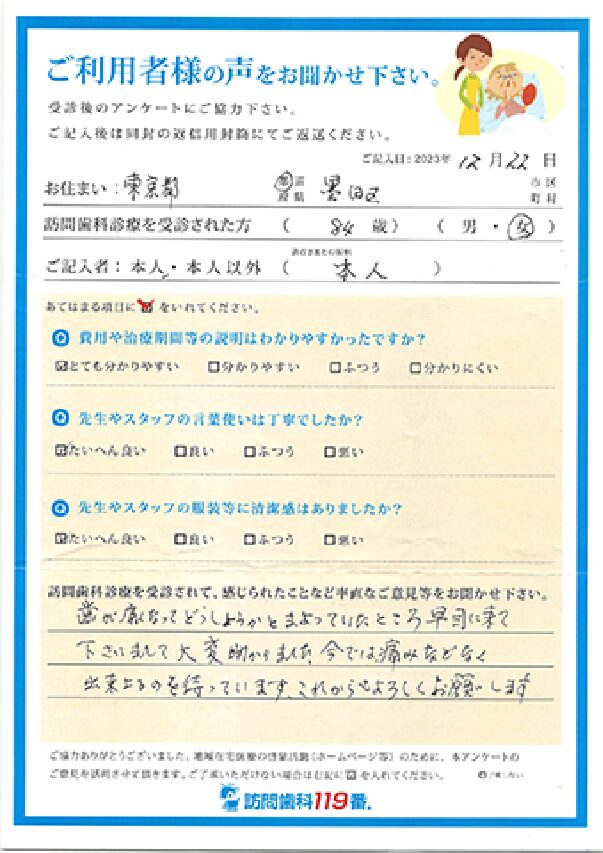 ご利用者様の声をお聞かせ下さい。
受診後のアンケートにご協力下さい。
ご記入後は同封の返信用封筒にてご返送ください。
ご記入日：2023年 12月22日
お住まい：東京都 都道府県 墨田区 市区町村
訪問歯科診療を受診された方 （ 84 歳） （ 男 ・ 女 ）
ご記入者：本人・本人以外 （ 本人 ）
あてはまる項目に☑をいれてください。
Q 費用や治療期間等の説明はわかりやすかったですか？
☑とても分かりやすい □分かりやすい □ふつう □分かりにくい
Q 先生やスタッフの言葉使いは丁寧でしたか？
☑たいへん良い □良い □ふつう □悪い
Q 先生やスタッフの服装等に清潔感はありましたか？
☑たいへん良い □良い □ふつう □悪い
訪問歯科診療を受診されて、感じられたことなど率直なご意見等をお聞かせ下さい。
歯が痛くなってどうしようかとまよっていたところ早目に来て
下さいまして大変助かりました、今では痛みなどなく
出来上るのを待っています、これからもよろしくお願いします
ご協力ありがとうございました。地域在宅医療の啓蒙活動（ホームページ等）のために、本アンケートの
ご意見を活用させて頂きます。ご了承いただけない場合は右記に☑を入れてください。
訪問歯科119番.